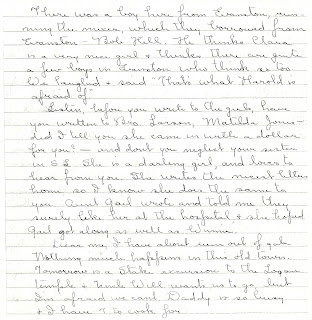 There was a boy here from Evanston, run-
ning the mixer, which they borrowed from
Evanston - Bob Hill. He thinks Clara
is a very nice girl & thinks there are quite
a few boys in Evanston who think so too.
We laughed & said "That's what Harold is
afraid of"
before you write to the girls, have
you written to Bro. Larson, Matilda Jones -
did I tell you she came in with a dollar
for you? - and don't you neglect your sister
in S.L. She is a darling girl, and loves to
hear from you. She writes the nicest letters
home so I know she does the same to
you. Aunt Gail wrote and told me they
surely like her at the hospital & she hoped
Gail got along as well as Winnie.
Dear me, I have about run out of gab.
Nothing much happens in this old town.
Tomorrow is a Stake excursion to the Logan
Temple & Uncle Will wants us to go, but
I'm afraid we can't. Daddy is so busy
& I have 7 to cook for.